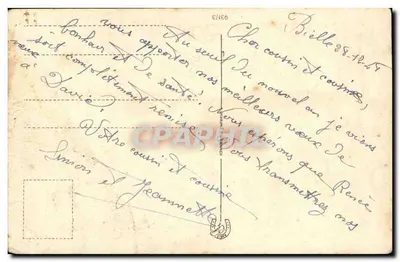 Bielle 28.12.45
Cher cousin et cousine,
Au seuil du nouvel an je viens
vous apporter nos meilleurs vœux de
bonheur et de santé. Nous espérons que Renée
soit complètement remise. Vous transmettrez nos
vœux à David.
Votre cousin et cousine
Simon et Jeannette
CPARAMA